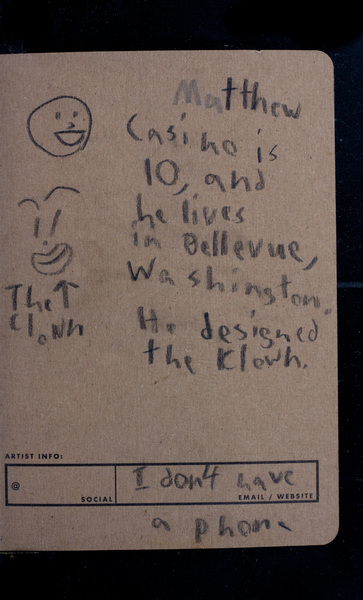 Matthew
Casino is
10, and
he lives
in Bellevue,
Washington.
He designed
the Klown.
The ↑
Clown
ARTIST INFO:
@
SOCIAL
I don't have
EMAIL / WEBSITE
a phone